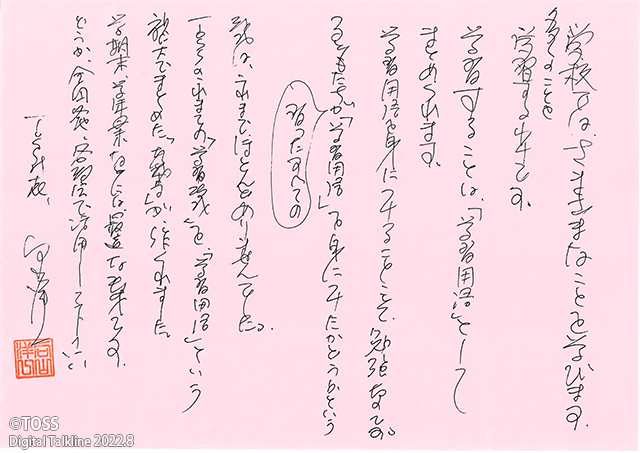 学校では、さまざまなことを学びます。
多くのことを
学習するわけです。
学習することは、「学習用語」として
まとめられます。
学習用語を身につけることこそ、勉強なのです。
子どもたちが「学習用語」を身につけたかどうかという
習ったすべての
は、これまでほとんどありませんでした。
TOSSのこれまでの「学習」を、「学習用語」という
形でまとめた「」が、作られました。
学期末、学年末などには最適なです。
どうか、今回、で活用して下さい
TOSS代表、向山洋一
©TOSS
Digital Talkline 2022.8